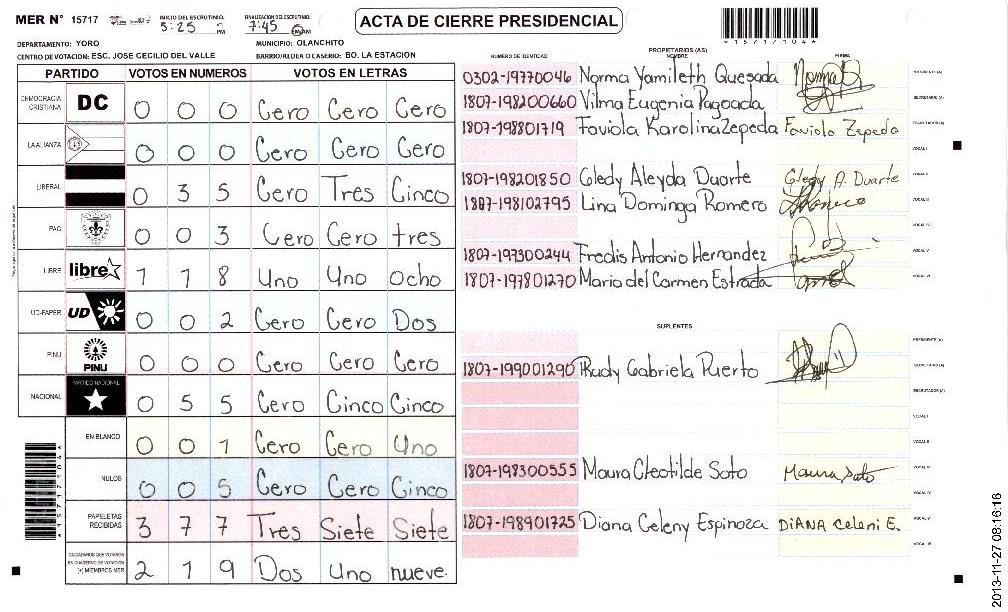 MER Nº 15717 INICIO DEL ESCRUTINIO: 5:25 PM FINALIZACION DEL ESCRUTINIO: 7:45
ACTA DE CIERRE PRESIDENCIAL
*15717104*
DEPARTAMENTO: YORO MUNICIPIO: OLANCHITO
CENTRO DE VOTACION: ESC. JOSE CECILIO DEL VALLE BARRIO/ALDEA O CASERIO: BO. LA ESTACION
PARTIDO VOTOS EN NUMEROS VOTOS EN LETRAS
DEMOCRACIA CRISTIANA DC 0 0 0 Cero Cero Cero
LA ALIANZA 0 0 0 Cero Cero Cero
LIBERAL 0 3 5 Cero Tres Cinco
PAC 0 0 3 Cero Cero tres
LIBRE libre 1 1 8 Uno Uno ocho
UD-FAPER UD 0 0 2 Cero Cero Dos
PINU PINU 0 0 0 Cero Cero Cero
NACIONAL PARTIDO NACIONAL 0 5 5 Cero Cinco Cinco
EN BLANCO 0 0 1 Cero Cero Uno
NULOS 0 0 5 Cero Cero Cinco
PAPELETAS RECIBIDAS 3 7 7 Tres Siete Siete
CIUDADANOS QUE VOTARON EN CUADERNO DE VOTACION (+) MIEMBROS MER 2 1 9 Dos Uno nueve
PROPIETARIOS (AS)
NUMERO DE IDENTIDAD NOMBRE FIRMA
0302-19770046 Norma Yamileth Quesada Norma PRESIDENTE (A)
1807-198200660 Vilma Eugenia Pagoada SECRETARIO (A)
1807-198801719 Faviola Karolina Zepeda Faviola Zepeda ESCRUTADOR (A)
VOCAL I
1807-198201850 Gledy Aleyda Duarte Gledy A. Duarte VOCAL II
1807-198102795 Lina Dominga Romero VOCAL III
VOCAL IV
1807-197300244 Fredis Antonio Hernandez VOCAL V
1807-197801270 Maria del Carmen Estrada VOCAL VI
SUPLENTES
PRESIDENTE (A)
1807-199001290 Rudy Gabriela Puerto SECRETARIO (A)
ESCRUTADOR (A)
VOCAL I
VOCAL II
1807-198300555 Maura Cleotilde Soto Maura Soto VOCAL III
VOCAL IV
1807-198901725 Diana Celeny Espinoza DiANA Celeni E. VOCAL V
VOCAL VI
*15717104*
2013-11-27 08:16:16